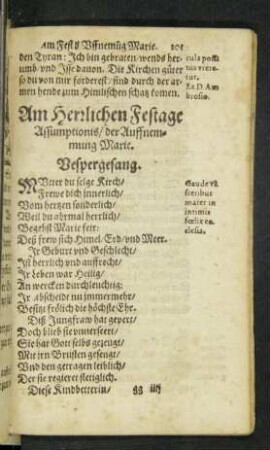 am Fest d' Vffnemũg Marie. 101
den Tyran: Ich bin gebraten/wends her-
umb/ vnd Isse dauon. Die Kirchen güter
so du von mir forderest/ sind durch der ar-
men hende zum Himlischen schatz komen.
Am Herrlichen Festage
Assumptionis/ der Auffnem-
mung Marie.
Vespergesang.
MVtter du selge Kirch/
Frewe dich innerlich/
Vom hertzen sonderlich/
Weil du ahrmal herrlich/
Begehst Marie feir:
Deß frew sich Himel/Erd/vnd Meer.
Ir Geburt vnd Geschlecht/
Ist herrlich vnd auffrecht/
Ir Leben war Heilig/
An wercken durchleuchtig:
Ir Abscheidt nu immermehr/
Besitzt frölich die höchste Ehr.
Diß Jungfraw hat gepert/
Doch blieb sie vnuerseert/
Sie hat Gott selbs gezeugt/
Mit irn Brüsten geseugt/
Vnd den getragen leiblich/
Der sie regieret stetiglich.
Diese Kindbetterin/
gg iiij
Gaude vi-
sceribus
mater in
intimis
fœlix ec-
clesia.